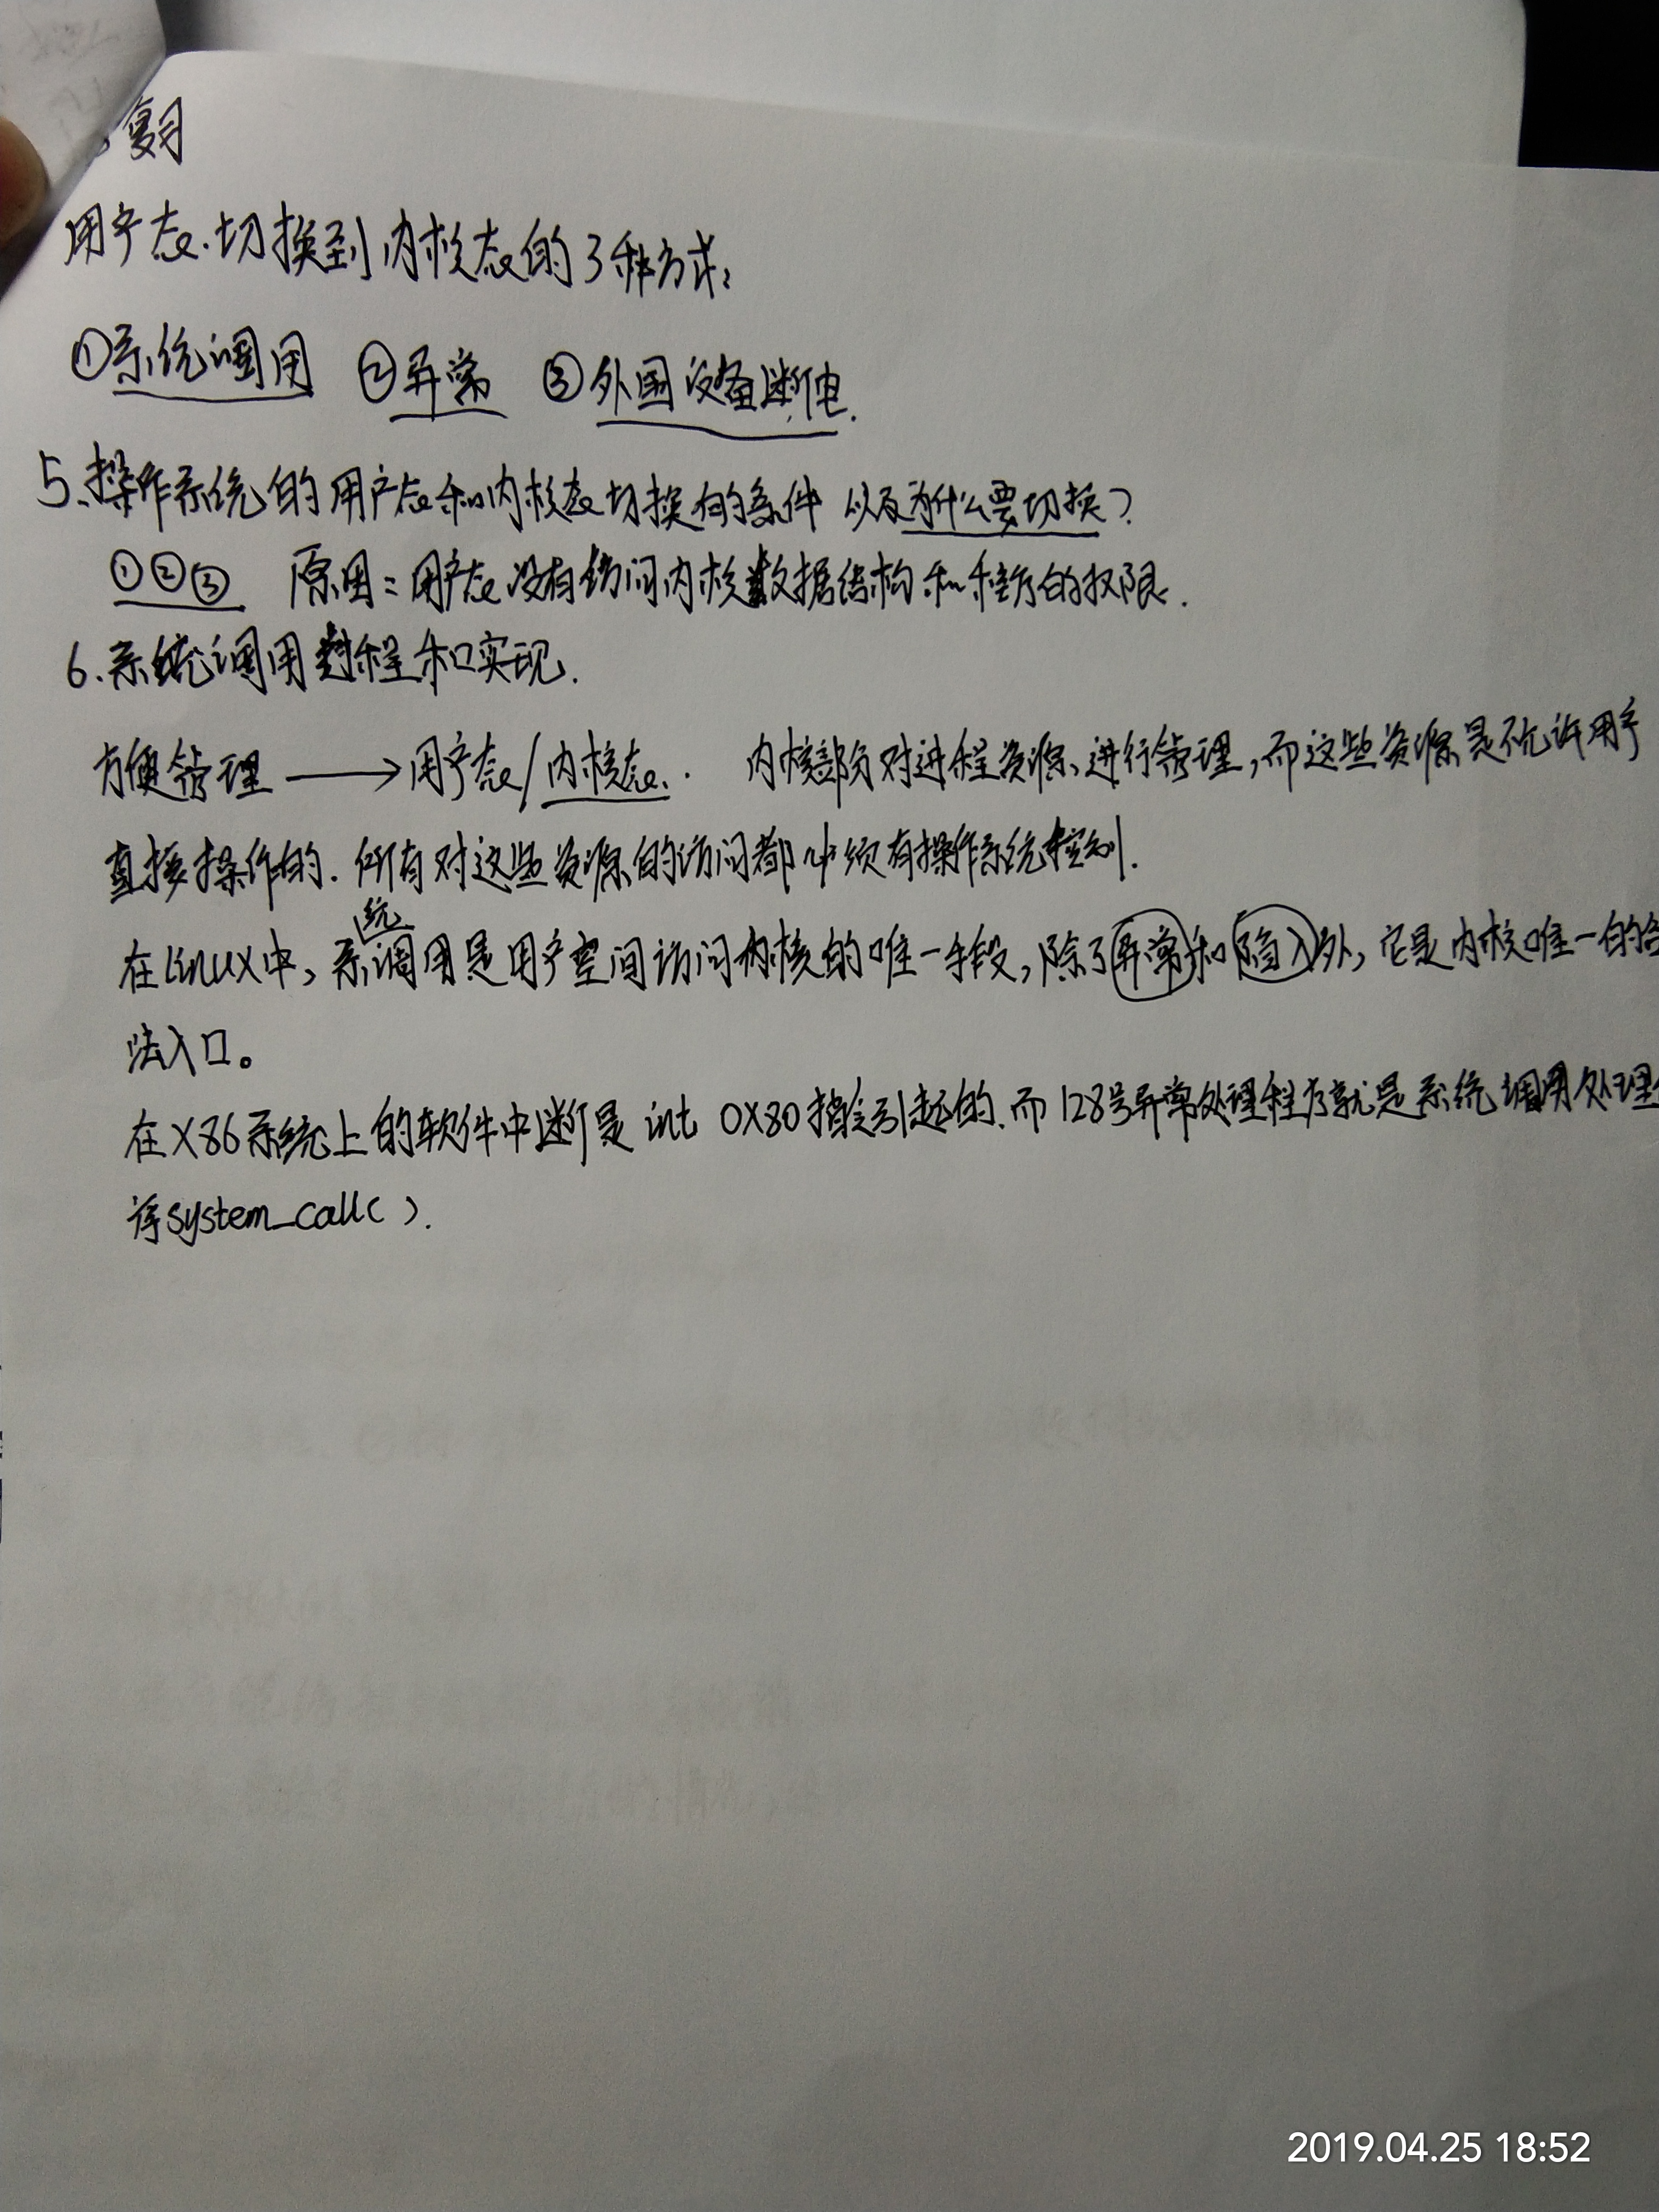 复习
用户态.切换到内核态的3种方式:
①系统调用 ②异常 ③外围设备断电.
5.操作系统的用户态和内核态切换的条件 以及为什么要切换?
①②③ 原因:用户态没有访问内核数据结构和程序的权限.
6.系统调用过程和实现.
方便管理 → 用户态/内核态. 内核部分对进程资源、进行管理,而这些资源是不允许用户
直接操作的. 所有对这些资源的访问都必须有操作系统控制.
在Linux中,系统调用是用户空间访问内核的唯一手段,除了异常和陷入外,它是内核唯一的合
法入口。
在X86系统上的软件中断是 int 0X80指令引起的.而128号异常处理程序就是系统调用处理
序system_call().
2019.04.25 18:52